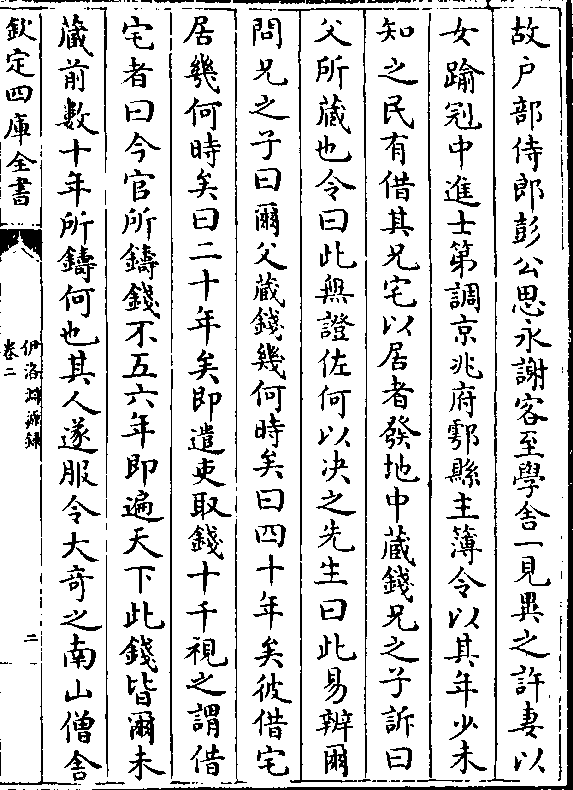 故戸部侍郎彭公思永謝客至學舍一見異之許妻以
女踰冠中進士第調京兆府鄠縣主簿令以其年少未
知之民有借其兄宅以居者發地中藏錢兄之子訴曰
父所藏也令曰此無證佐何以决之先生曰此易辨爾
問兄之子曰爾父藏錢幾何時矣曰四十年矣彼借宅
居幾何時矣曰二十年矣即遣吏取錢十千視之謂借
宅者曰今官所鑄錢不五六年即遍天下此錢皆爾未
藏前數十年所鑄何也其人遂服令大竒之南山僧舍
欽定四庫全書
伊洛淵源録
卷二
二